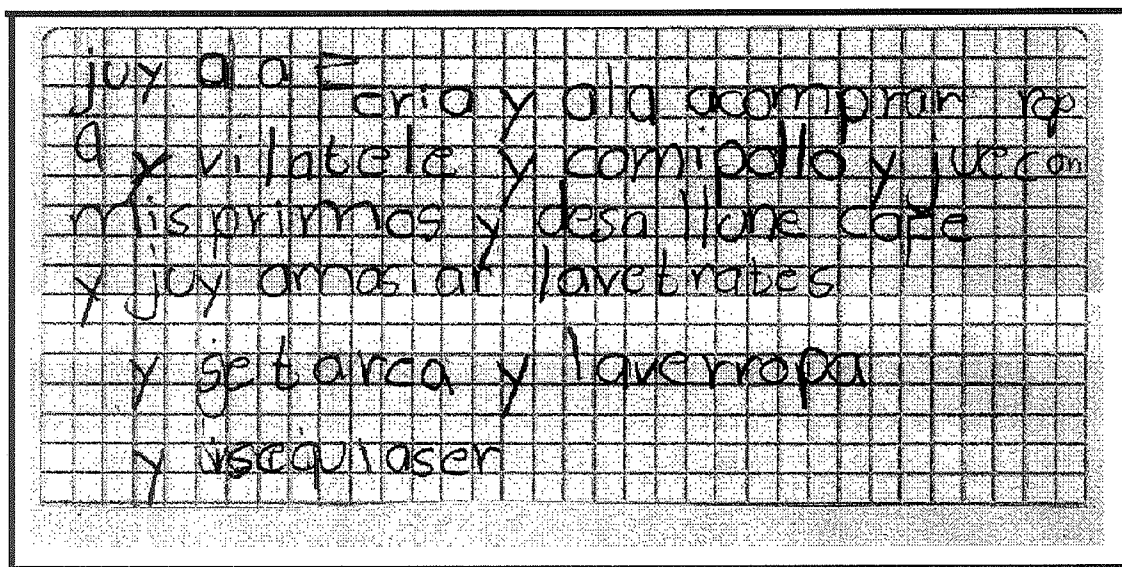 juy al a Feria y ala acomprar rop
a y vi latele y comipollo y jue con
mis primos y desa llune cafe
y juy amasiar lavetrates
y getarea y laverropa
y isequiaser